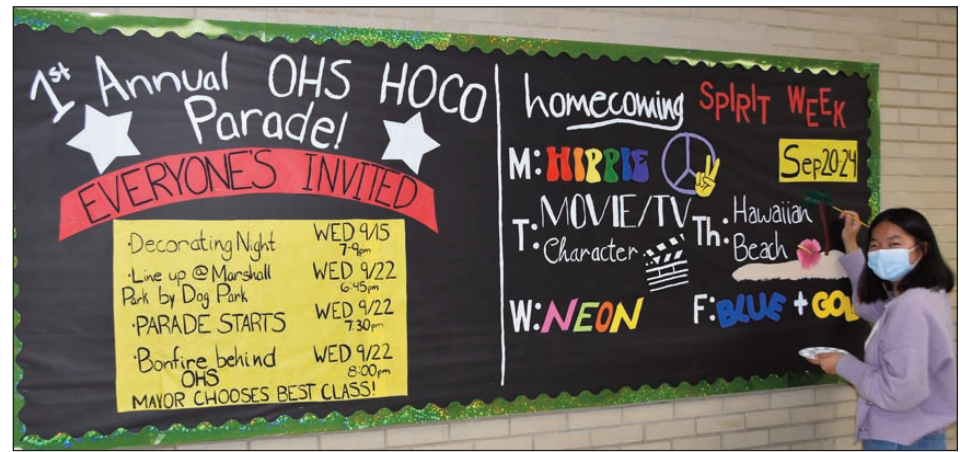 1st Annual OHS HOCO
Parade!
EVERYONE'S INVITED
·Decorating Night WED 9/15
7-9pm
·Line up @ Marshall WED 9/22
Park by Dog Park 6:45pm
·PARADE STARTS WED 9/22
7:30pm
·Bonfire behind WED 9/22
OHS 8:00pm
MAYOR CHOOSES BEST CLASS!
homecoming SPIRIT WEEK
Sep20-24
M: HIPPIE
T: MOVIE/TV
Character
W: NEON
Th: Hawaiian
Beach
F: BLUE + GOL